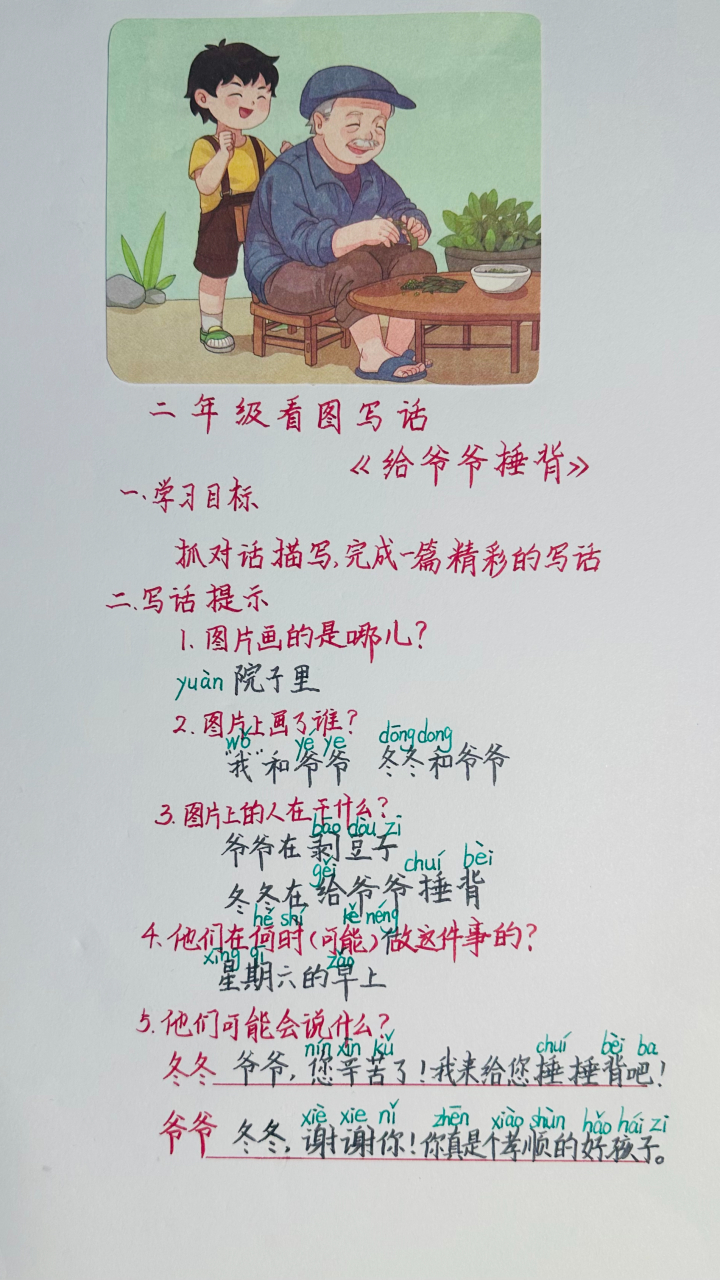 二年级看图写话
《给爷爷捶背》
一.学习目标
抓对话描写,完成一篇精彩的写话
二.写话提示
1.图片画的是哪儿?
yuàn 院子里
2.图片上画了谁?
wǒ yé ye dōngdong
"我"和爷爷 冬冬和爷爷
3.图片上的人在干什么?
bāo dòu zi
爷爷在剥豆子
gěi chuí bèi
冬冬在给爷爷捶背
hé shí kě néng
4.他们在何时(可能)做这件事的?
xīng qī zǎo
星期六的早上
5.他们可能会说什么?
nín xīn kǔ chuí bèi ba
冬冬 爷爷,您辛苦了!我来给您捶捶背吧!
xiè xie nǐ zhēn xiào shùn hǎo hái zi
爷爷 冬冬,谢谢你!你真是个孝顺的好孩子。